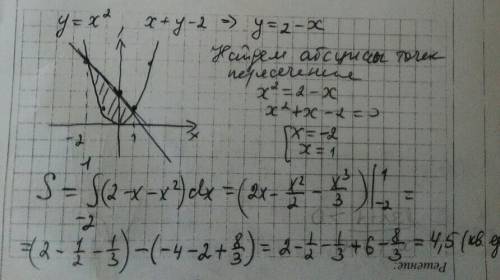 y = x², x+y-2 ⇒ y = 2-x
Найдем абсциссы точек
пересечения
x² = 2-x
x²+x-2=0
[x=-2
x=1
-2 1 x
S = ∫₋₂¹(2-x-x²)dx = (2x - x²/2 - x³/3)|₋₂¹ =
= (2 - 1/2 - 1/3) - (-4-2+8/3) = 2 - 1/2 - 1/3 + 6 - 8/3 = 4,5 (кв. ед
Решение: